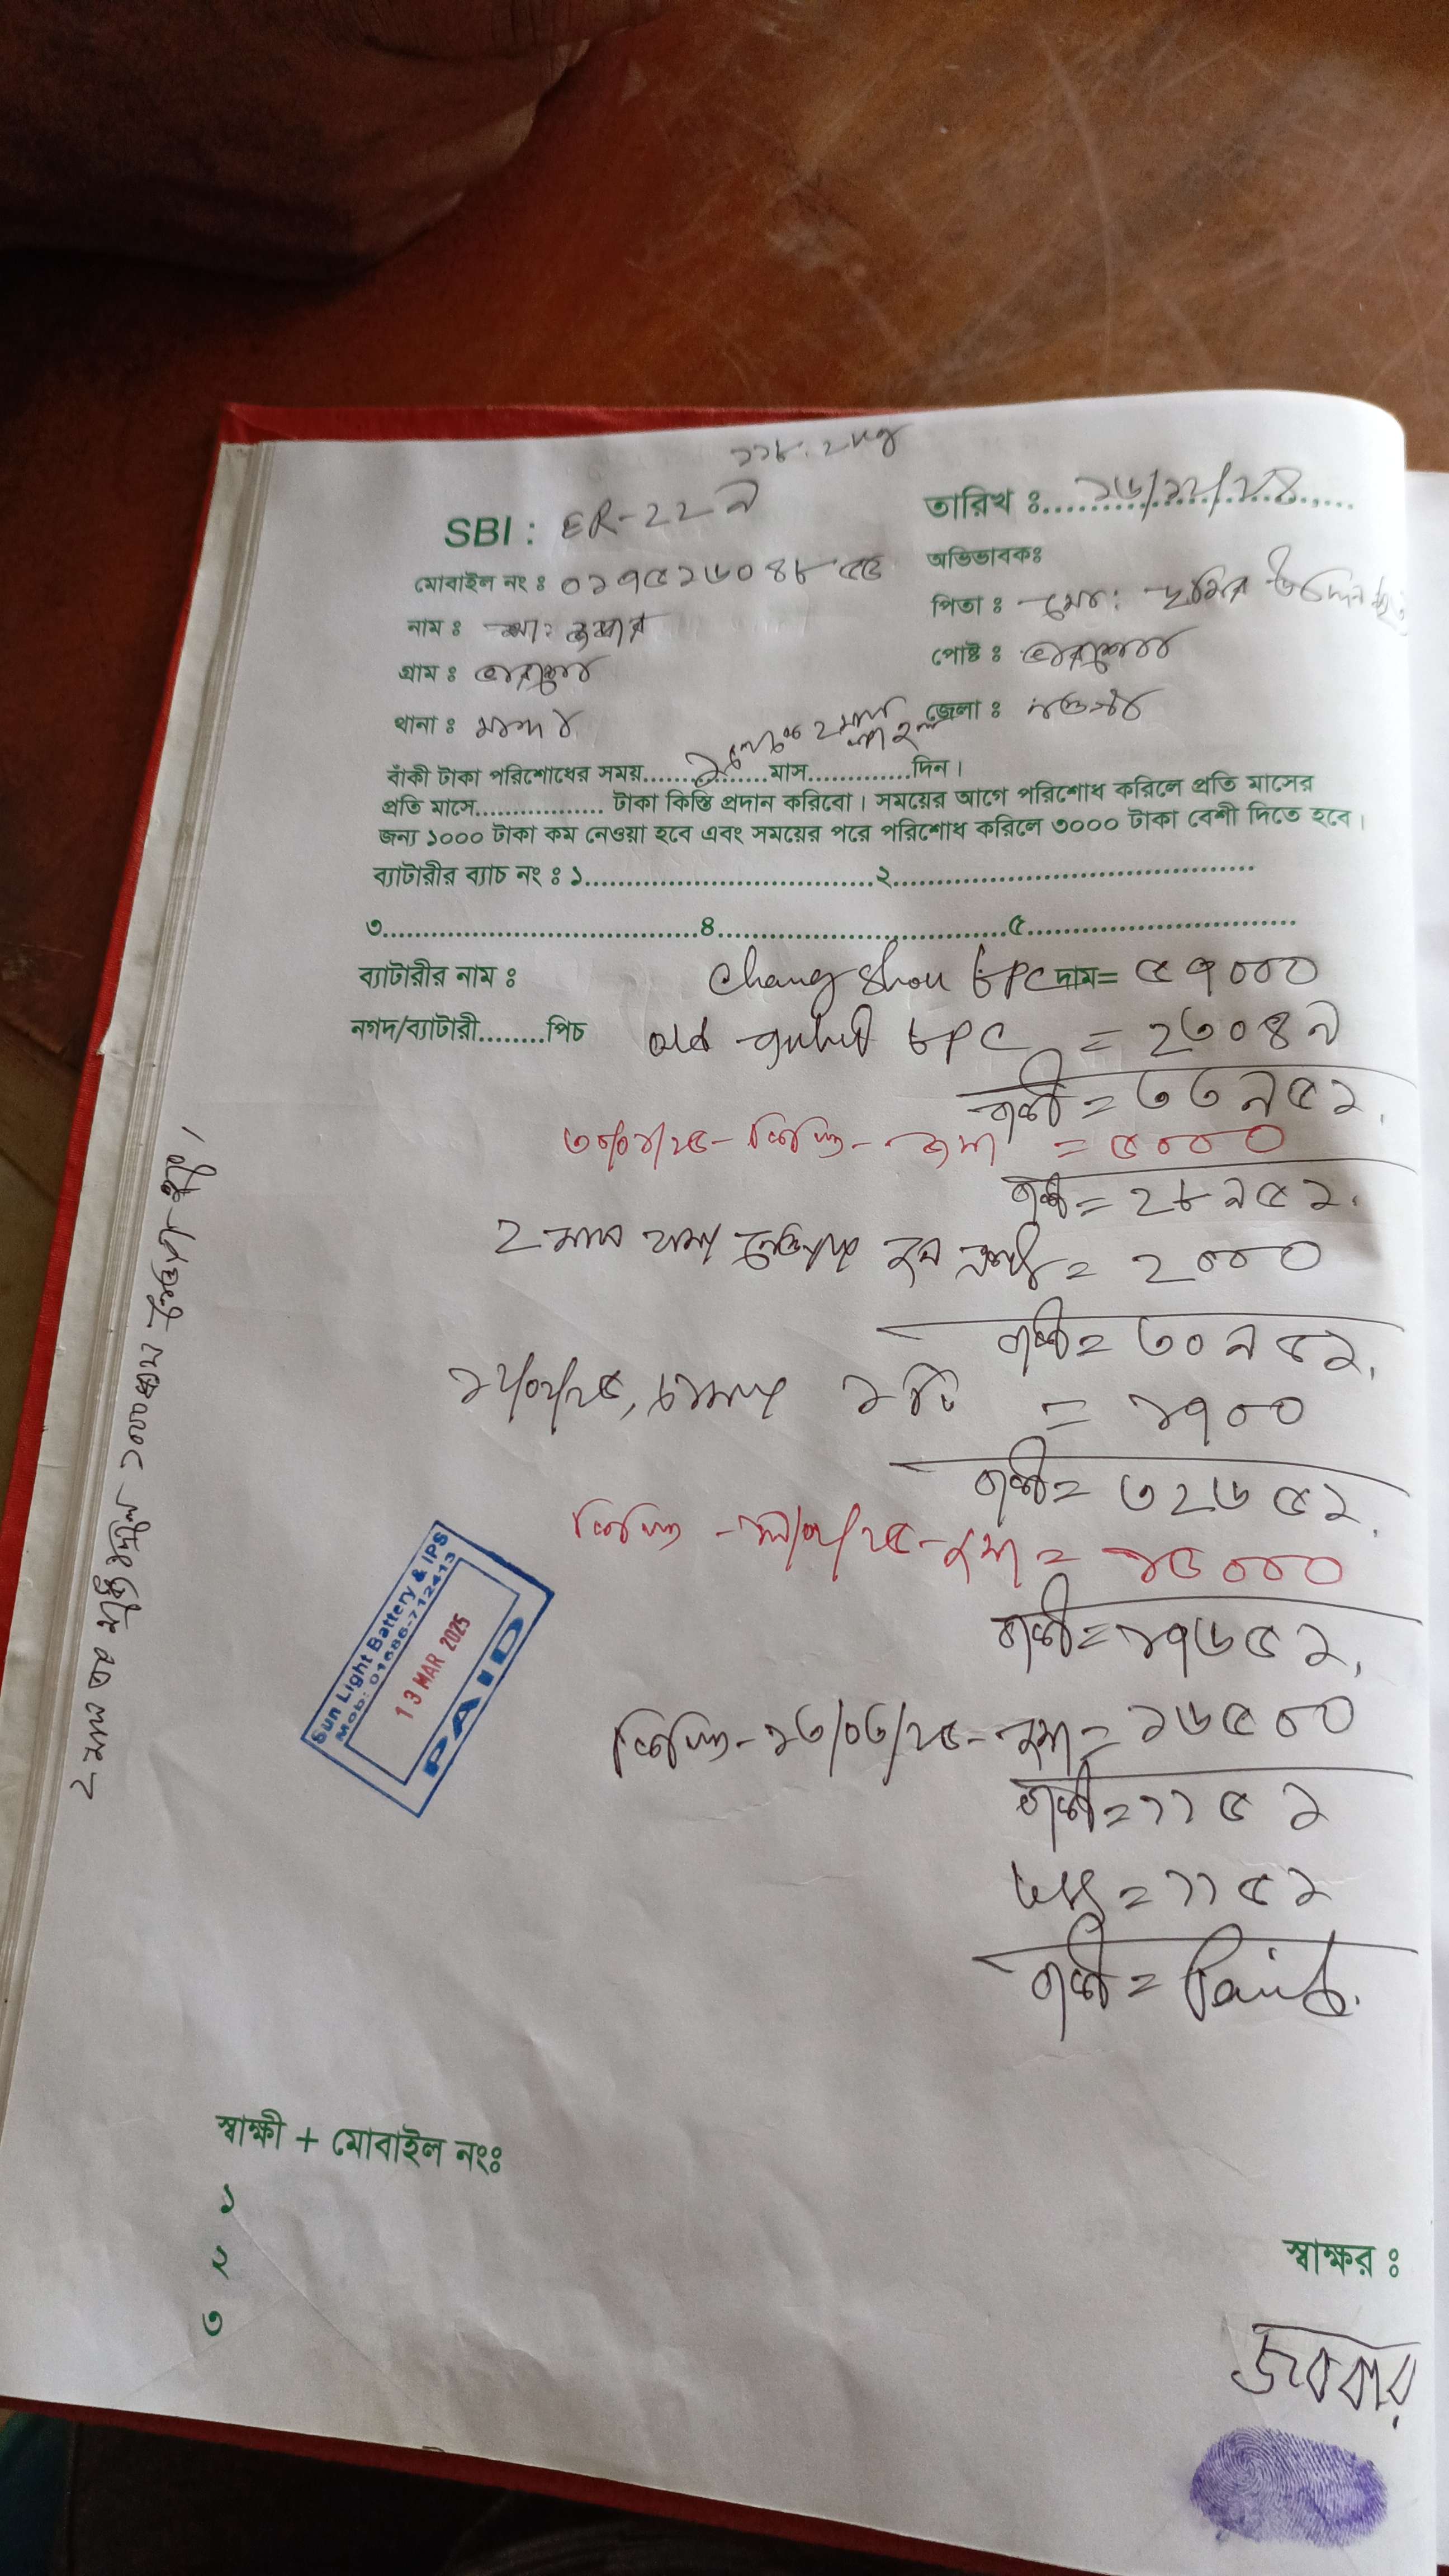 ১১৮.২kg
SBI : ER-22৯
তারিখ ঃ ১৬/১২/২৪
মোবাইল নং ঃ ০১৭৫২৬০৪৮৫৫
অভিভাবকঃ
নাম ঃ মোঃ জব্বার
পিতা ঃ মোঃ উদ্দিন
গ্রাম ঃ
পোষ্ট ঃ
থানা ঃ মান্দা
জেলা ঃ নওগাঁ
বাঁকী টাকা পরিশোধের সময়...............মাস.............দিন।
প্রতি মাসে................ টাকা কিস্তি প্রদান করিবো। সময়ের আগে পরিশোধ করিলে প্রতি মাসের
জন্য ১০০০ টাকা কম নেওয়া হবে এবং সময়ের পরে পরিশোধ করিলে ৩০০০ টাকা বেশী দিতে হবে।
ব্যাটারীর ব্যাচ নং ঃ ১....................................২..............................................
৩.......................................৪....................................৫.................................
ব্যাটারীর নাম ঃ Chang Shou ৮PC দাম= ৫৭০০০
নগদ/ব্যাটারী........পিচ old ৮PC = ২৩০৪৯
বাকী = ৩৩৯৫১
কিস্তি - জমা = ৫০০০
বাকী = ২৮৯৫১
২ মাস = ২০০০
বাকী = ৩০৯৫১
১ টি = ১৭০০
বাকী = ৩২৬৫১
কিস্তি - জমা = ১৫০০০
বাকী = ১৭৬৫১
কিস্তি - ১৩/০৩/২৫ - জমা = ১৬৫০০
বাকী = ১১৫১
= ১১৫১
বাকী = Paid.
Sun Light Battery & IPS
Mob: 01686-712413
13 MAR 2025
PAID
স্বাক্ষী + মোবাইল নংঃ
১
২
৩
স্বাক্ষর ঃ
জব্বার